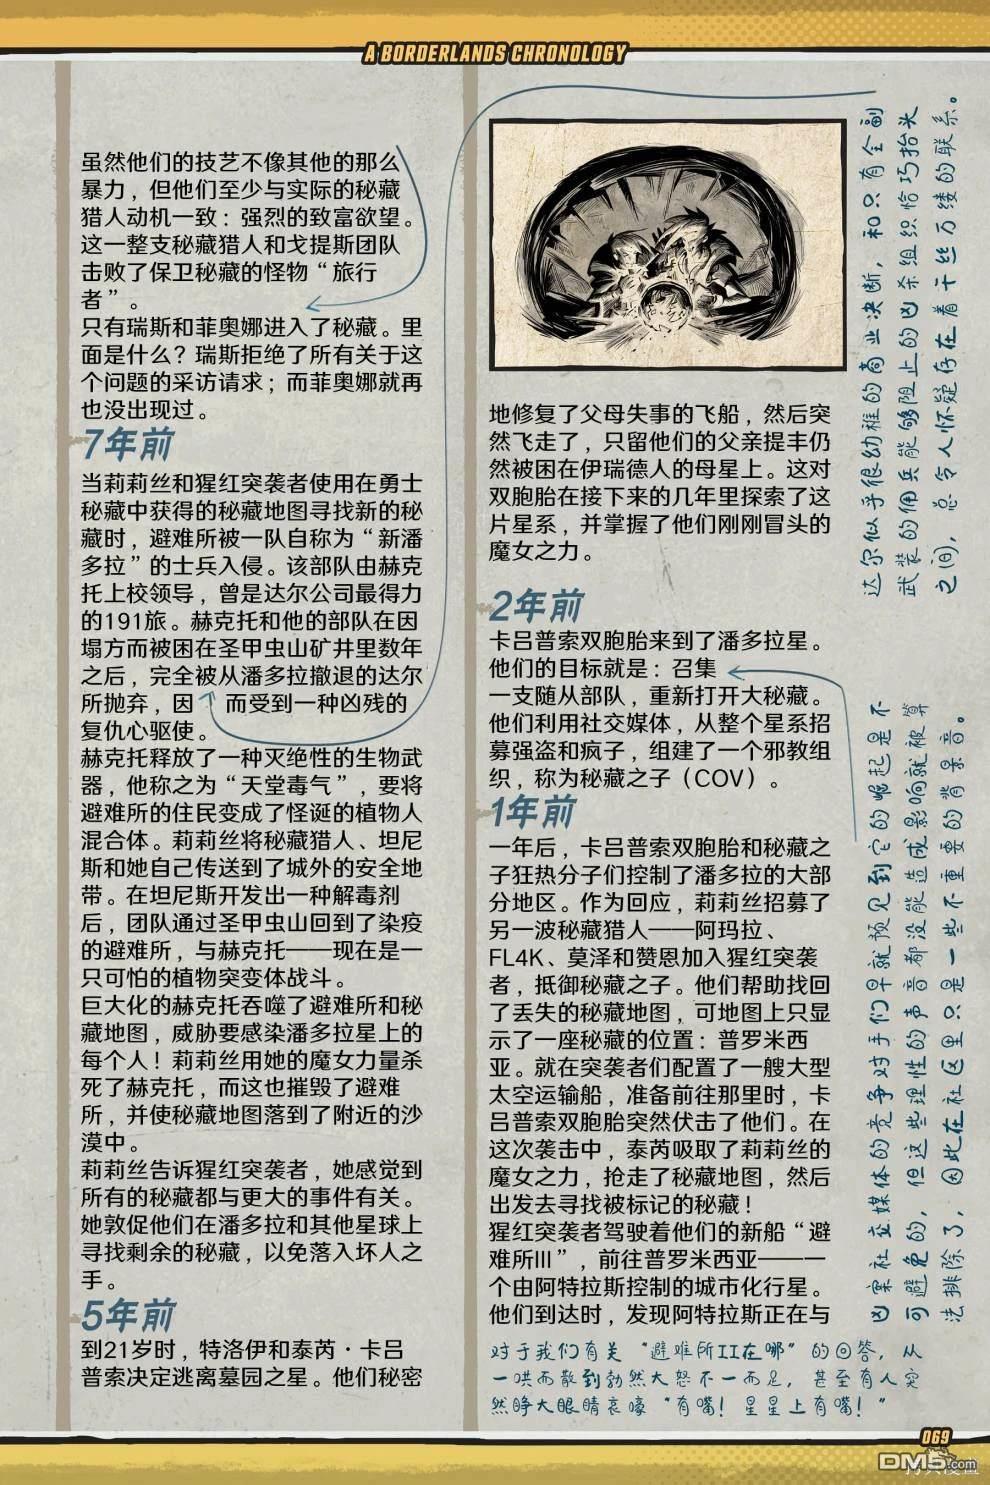 A BORDERLANDS CHRONOLOGY
虽然他们的技艺不像其他的那么
暴力，但他们至少与实际的秘藏
猎人动机一致：强烈的致富欲望。
这一整支秘藏猎人和戈提斯团队
击败了保卫秘藏的怪物“旅行
者”。
只有瑞斯和菲奥娜进入了秘藏。里
面是什么？瑞斯拒绝了所有关于这
个问题的采访请求；而菲奥娜就再
也没出现过。
7年前
当莉莉丝和猩红突袭者使用在勇士
秘藏中获得的秘藏地图寻找新的秘
藏时，避难所被一队自称为“新潘
多拉”的士兵入侵。该部队由赫克
托上校领导，曾是达尔公司最得力
的191旅。赫克托和他的部队在因
塌方而被困在圣甲虫山矿井里数年
之后，完全被从潘多拉撤退的达尔
所抛弃，因 而受到一种凶残的
复仇心驱使。
赫克托释放了一种灭绝性的生物武
器，他称之为“天堂毒气”，要将
避难所的住民变成了怪诞的植物人
混合体。莉莉丝将秘藏猎人、坦尼
斯和她自己传送到了城外的安全地
带。在坦尼斯开发出一种解毒剂
后，团队通过圣甲虫山回到了染疫
的避难所，与赫克托——现在是一
只可怕的植物突变体战斗。
巨大化的赫克托吞噬了避难所和秘
藏地图，威胁要感染潘多拉星上的
每个人！莉莉丝用她的魔女力量杀
死了赫克托，而这也摧毁了避难
所，并使秘藏地图落到了附近的沙
漠中。
莉莉丝告诉猩红突袭者，她感觉到
所有的秘藏都与更大的事件有关。
她敦促他们在潘多拉和其他星球上
寻找剩余的秘藏，以免落入坏人之
手。
5年前
到21岁时，特洛伊和泰芮·卡吕
普索决定逃离墓园之星。他们秘密
地修复了父母失事的飞船，然后突
然飞走了，只留他们的父亲提丰仍
然被困在伊瑞德人的母星上。这对
双胞胎在接下来的几年里探索了这
片星系，并掌握了他们刚刚冒头的
魔女之力。
2年前
卡吕普索双胞胎来到了潘多拉星。
他们的目标就是：召集
一支随从部队，重新打开大秘藏。
他们利用社交媒体，从整个星系招
募强盗和疯子，组建了一个邪教组
织，称为秘藏之子（COV）。
1年前
一年后，卡吕普索双胞胎和秘藏之
子狂热分子们控制了潘多拉的大部
分地区。作为回应，莉莉丝招募了
另一波秘藏猎人——阿玛拉、
FL4K、莫泽和赞恩加入猩红突袭
者，抵御秘藏之子。他们帮助找回
了丢失的秘藏地图，可地图上只显
示了一座秘藏的位置：普罗米西
亚。就在突袭者们配置了一艘大型
太空运输船，准备前往那里时，卡
吕普索双胞胎突然伏击了他们。在
这次袭击中，泰芮吸取了莉莉丝的
魔女之力，抢走了秘藏地图，然后
出发去寻找被标记的秘藏！
猩红突袭者驾驶着他们的新船“避
难所III”，前往普罗米西亚——一
个由阿特拉斯控制的城市化行星。
他们到达时，发现阿特拉斯正在与
达尔似乎很幼稚的商业决断，和只有全副
武装的佣兵能够阻止的凶杀组织恰巧抬头
之间，总令人怀疑存在着千丝万缕的联系。
凶案社交媒体的竞争对手们早就预见到它的崛起是不
可避免的，但这些理性的声音都没能造成影响就被算
法排除了，因此在社区里只是一些不重要的背景音。
对于我们有关“避难所II在哪”的回答，从
一哄而散到勃然大怒不一而足，甚至有人突
然睁大眼睛哀嚎“有嘴！星星上有嘴！”
069
DM5.com